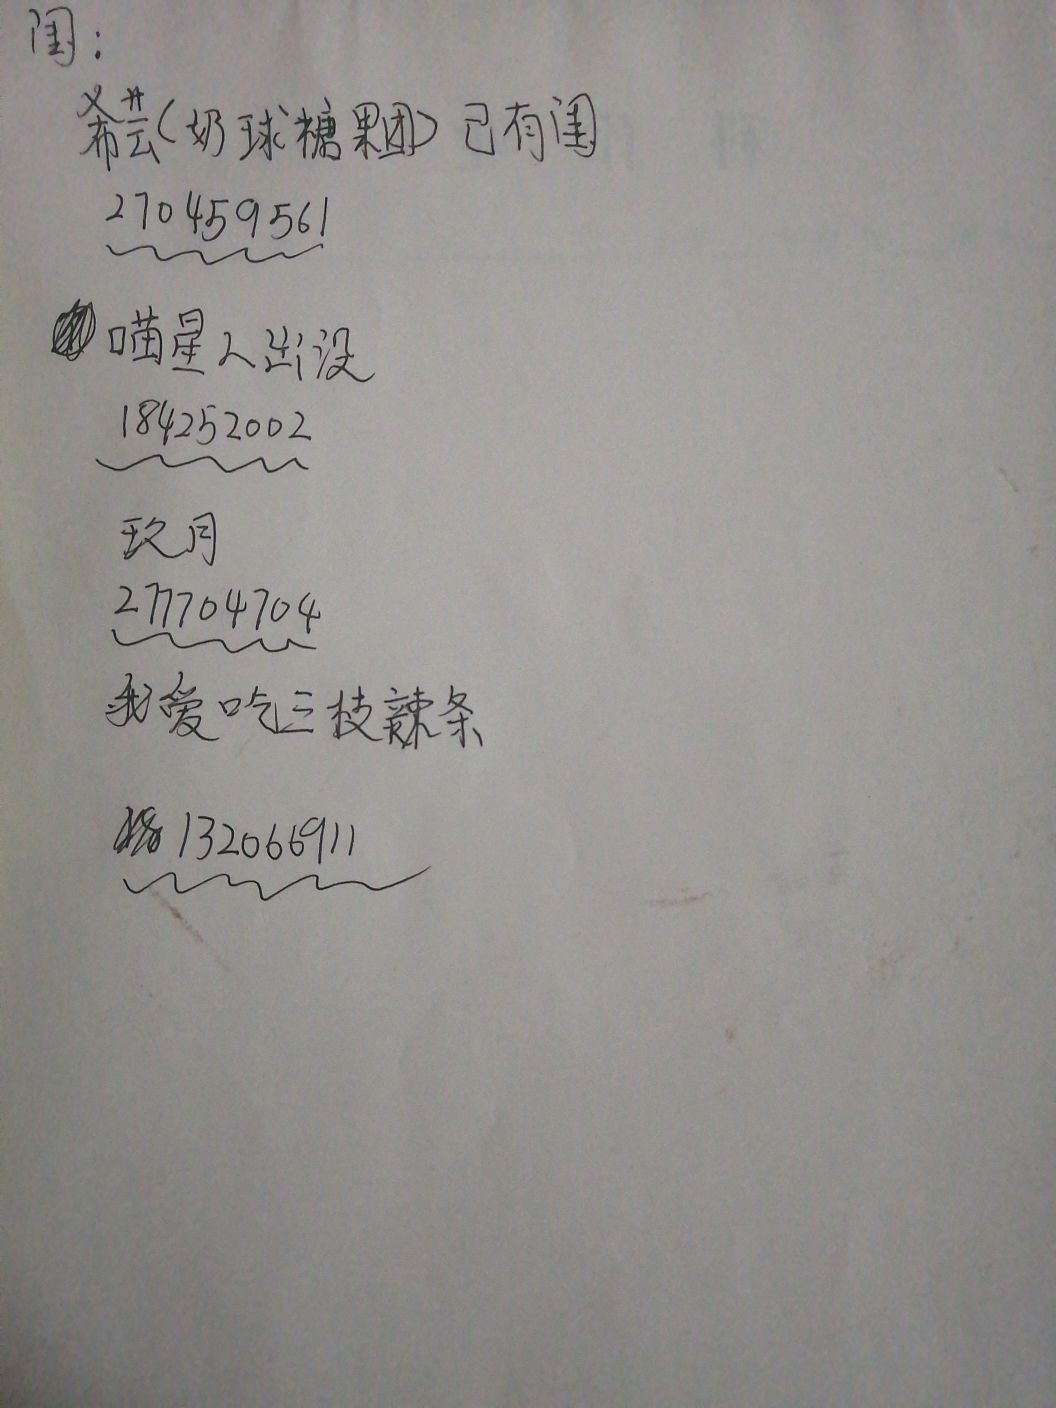 闺:
希芸(奶球糖果团)已有闺
270459561
喵星人出没
184252002
玖月
277704704
我爱吃三枝辣条
132066911